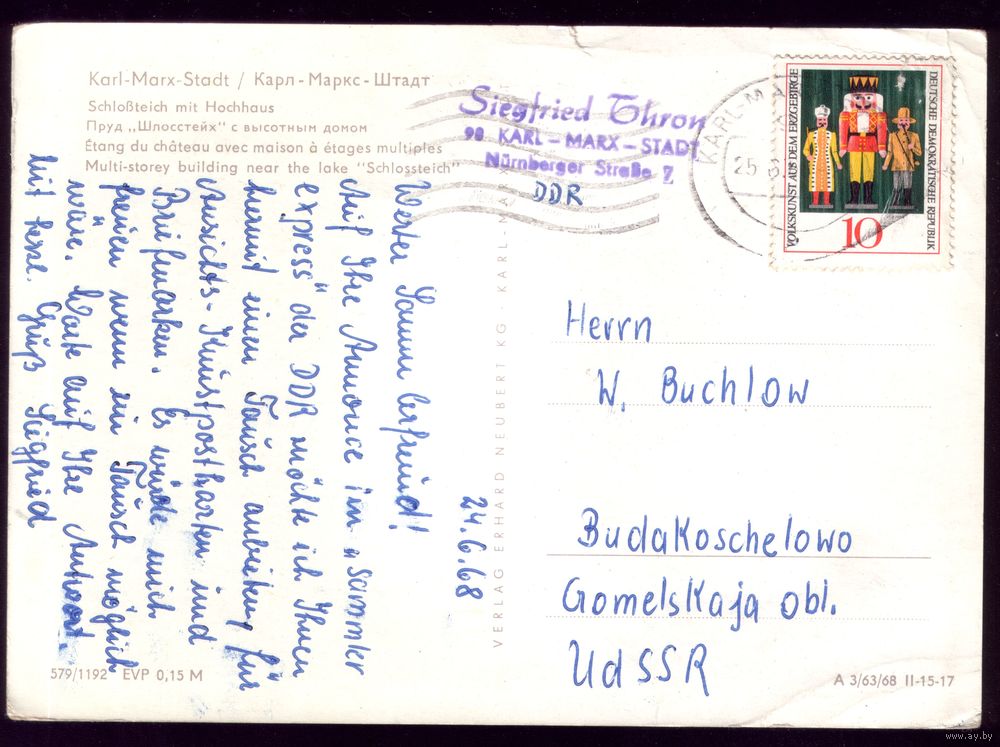 Karl-Marx-Stadt / Карл-Маркс-Штадт
Schloßteich mit Hochhaus
Пруд „Шлосстейх" с высотным домом
Étang du château avec maison à étages multiples
Multi-storey building near the lake "Schlossteich"
Siegfried Thron
90 KARL-MARX-STADT
Nürnberger Straße 7
DDR
KARL-MA
25
VOLKSKUNST AUS DEM ERZGEBIRGE
DEUTSCHE DEMOKRATISCHE REPUBLIK
10
24.6.68
Werter Sammlerfreund!
Auf Ihre Annonce im „Sammler
express" der DDR möchte ich Ihnen
hiermit einen Tausch anbieten für
Ansichts-Kunstpostkarten und
Briefmarken. Es würde mich
freuen wenn ein Tausch möglich
wäre. Warte auf Ihre Antwort.
Mit Gruß Siegfried.
VERLAG ERHARD NEUBERT KG · KARL-MAR
Herrn
W. Buchlow
Budakoschelowo
Gomelskaja obl.
UdSSR
579/1192 EVP 0,15 M
A 3/63/68 II-15-17
www.ay.by